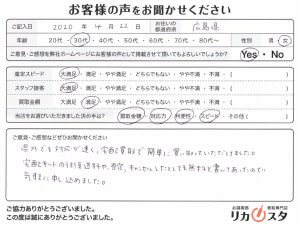 お客様の声をお聞かせください
ご記入日 2020年4月22日 お住いの都道府県 広島県
年齢 20代・30代・40代・50代・60代・70代・80代〜 性別 男・女
ご意見・ご感想を弊社ホームページにお客様の声として掲載させて頂いてもよろしいでしょうか? Yes・No
査定スピード 大満足・満足・やや満足・どちらでもない・やや不満・不満
スタッフ接客 大満足・満足・やや満足・どちらでもない・やや不満・不満
買取金額 大満足・満足・やや満足・どちらでもない・やや不満・不満
当店をお選びいただきました決め手は? 買取金額・対応力・利便性・スピード・その他( )
ご意見・ご感想などぜひお聞かせください
県外でも対応が速く、宅配買取で簡単に買い取っていただけました。
宅配キットの行き送料や、査定、キャンセルしたとしても無料と書いてあったので
気軽に申し込めました。
ご協力ありがとうございました。
この度は誠にありがとうございました。
お酒高価買取専門店
リカスタ